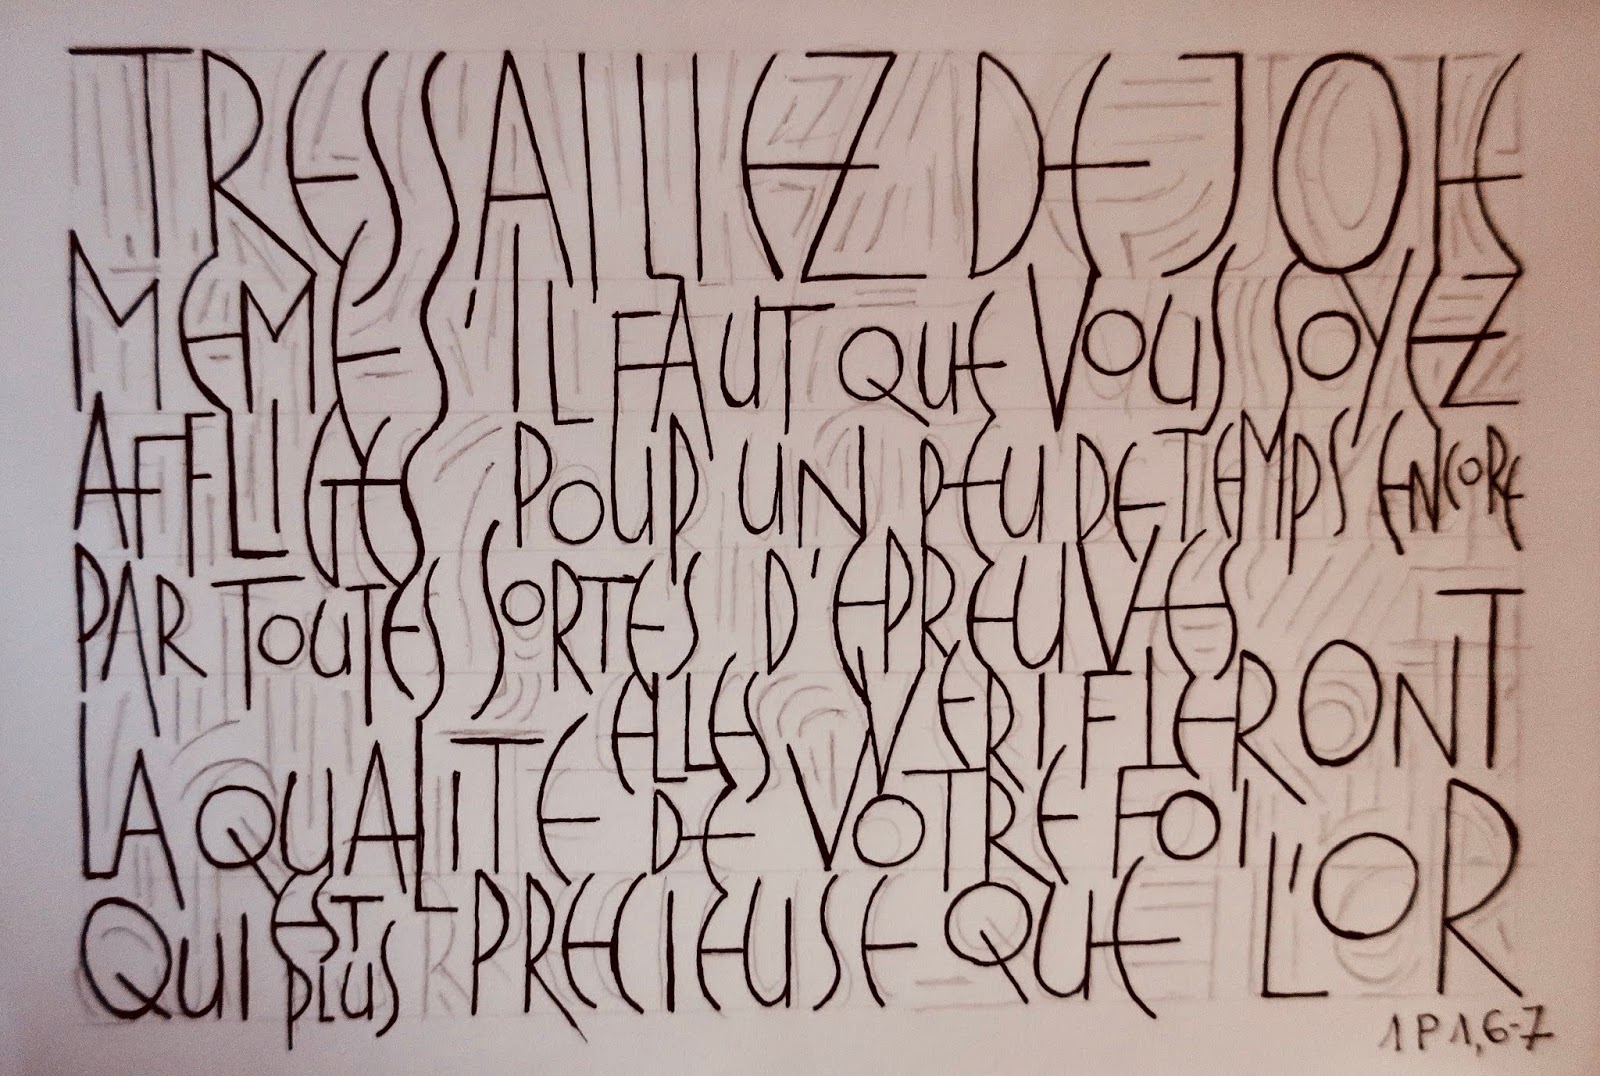 TRESSAILLEZ DE JOIE
MEME S'IL FAUT QUE VOUS SOYEZ
AFFLIGES POUR UN PEU DE TEMPS ENCORE
PAR TOUTES SORTES D'EPREUVES
ELLES VERIFIERONT
LA QUALITE DE VOTRE FOI
QUI EST PLUS PRECIEUSE QUE L'OR
1 P 1,6-7